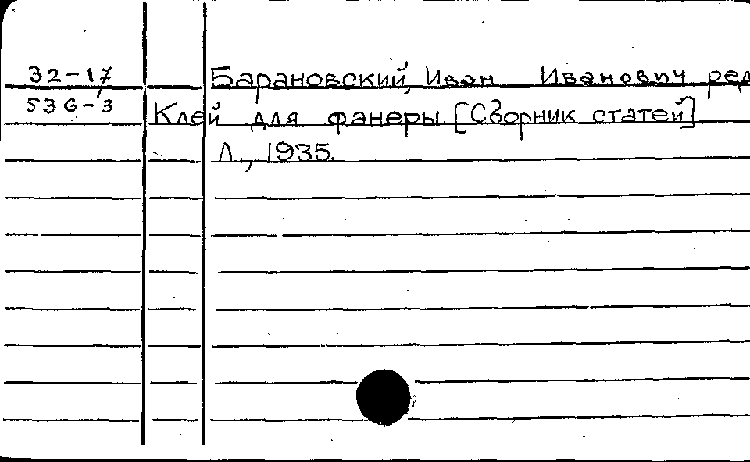 32-17 Барановский, Иван Иванович ред
536-3 Клей для фанеры [Сборник статей]
Л., 1935.